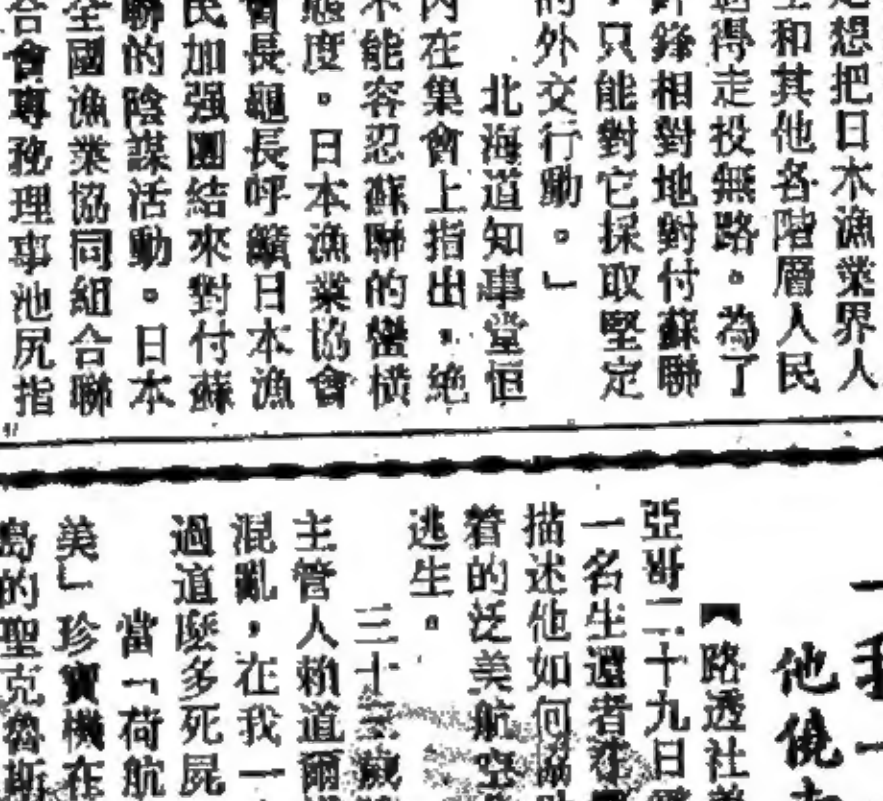 想把日本漁業界人
和其他各階層人民
得走投無路。為了
鋒相對地對付蘇聯
只能對它採取堅定
的外交行動。」
北海道知事堂恒
內在集會上指出,絕
不能容忍蘇聯的蠻橫
態度。日本漁業協會
會長龜長呼籲日本漁
民加强團結來對付蘇
聯的陰謀活動。日本
全國漁業協同組合聯
合會專務理事池尻指
一我一
他僥
【路透社
亞哥二十九日
一名生還者在
描述他如何協助
着的泛美航空
逃生。
三十三歲
主管人賴道爾
混亂,在我一
過道麽多死屍
當「荷航
美」珍寶機在
島的聖克魯斯